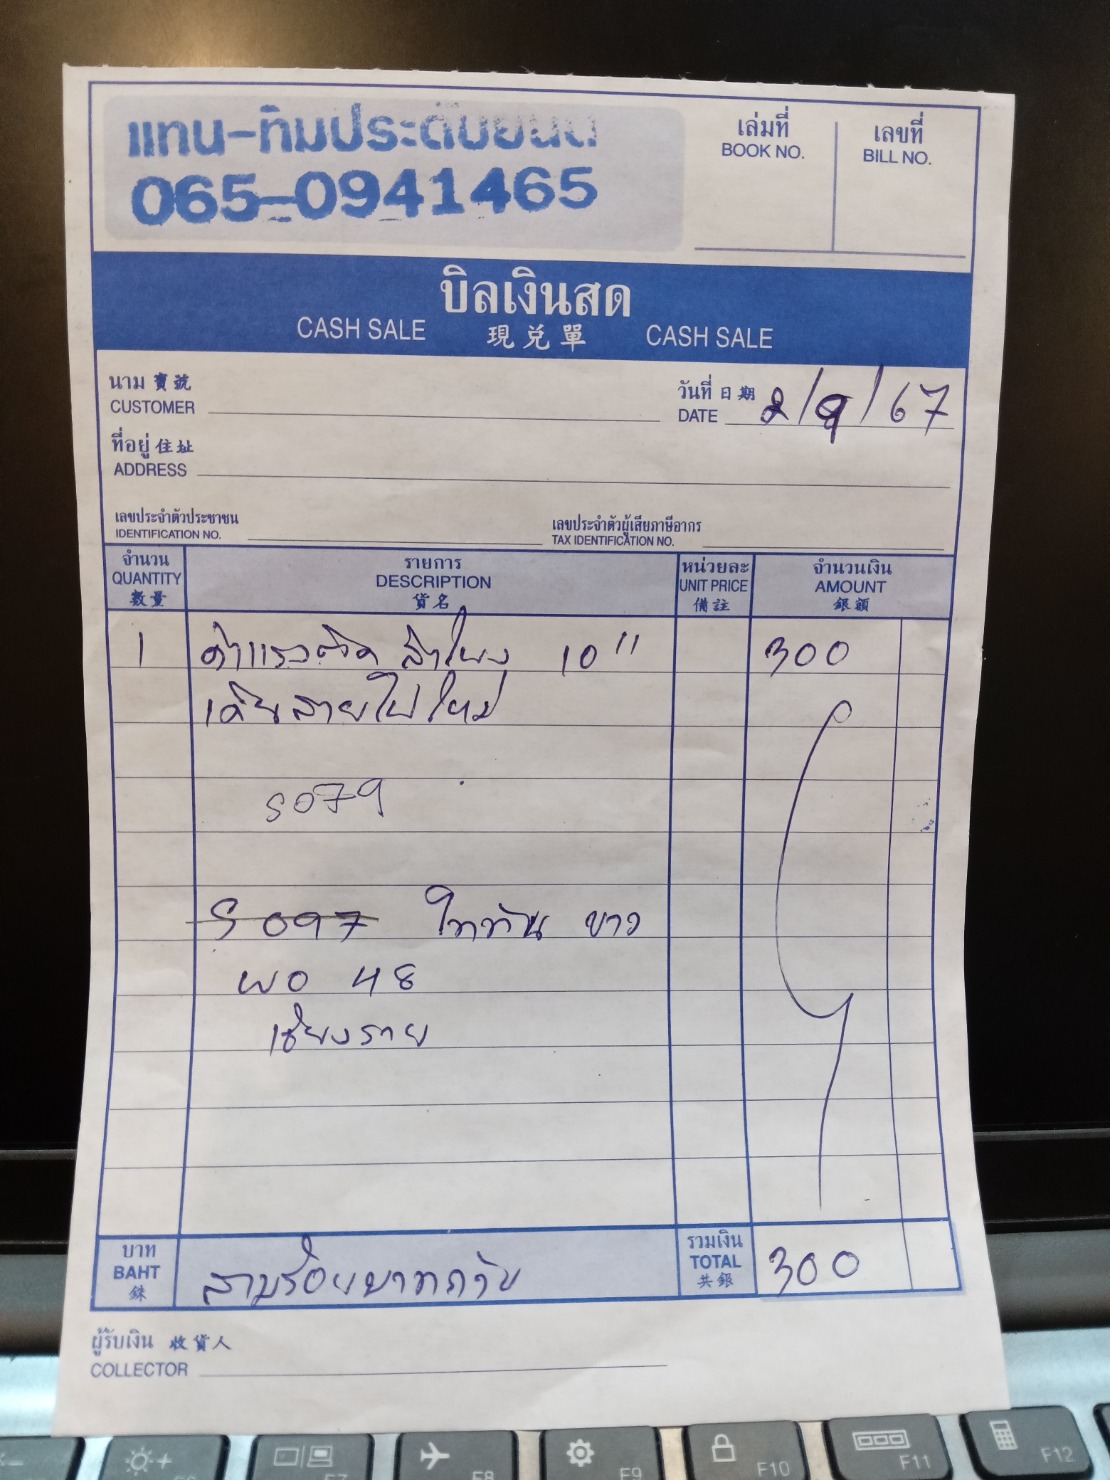 แทน-ทิมประดับยนต์
065-0941465
เล่มที่
BOOK NO.
เลขที่
BILL NO.
บิลเงินสด
CASH SALE 現兌單 CASH SALE
นาม 寶號
CUSTOMER
วันที่ 日期
DATE 2/9/67
ที่อยู่ 住址
ADDRESS
เลขประจำตัวประชาชน
IDENTIFICATION NO.
เลขประจำตัวผู้เสียภาษีอากร
TAX IDENTIFICATION NO.
จำนวน
QUANTITY
數量
รายการ
DESCRIPTION
貨名
หน่วยละ
UNIT PRICE
備註
จำนวนเงิน
AMOUNT
銀額
1 ค่าแรงติด ลำโพง 10" 300
เดินสายไฟใหม่
S079
S 097 ไททัน ขาว
ผอ 48
เชียงราย
บาท
BAHT
銖
สามร้อยบาทถ้วน
รวมเงิน
TOTAL
共銀
300
ผู้รับเงิน 收貨人
COLLECTOR
F7
F8
F9
F10
F11
F12